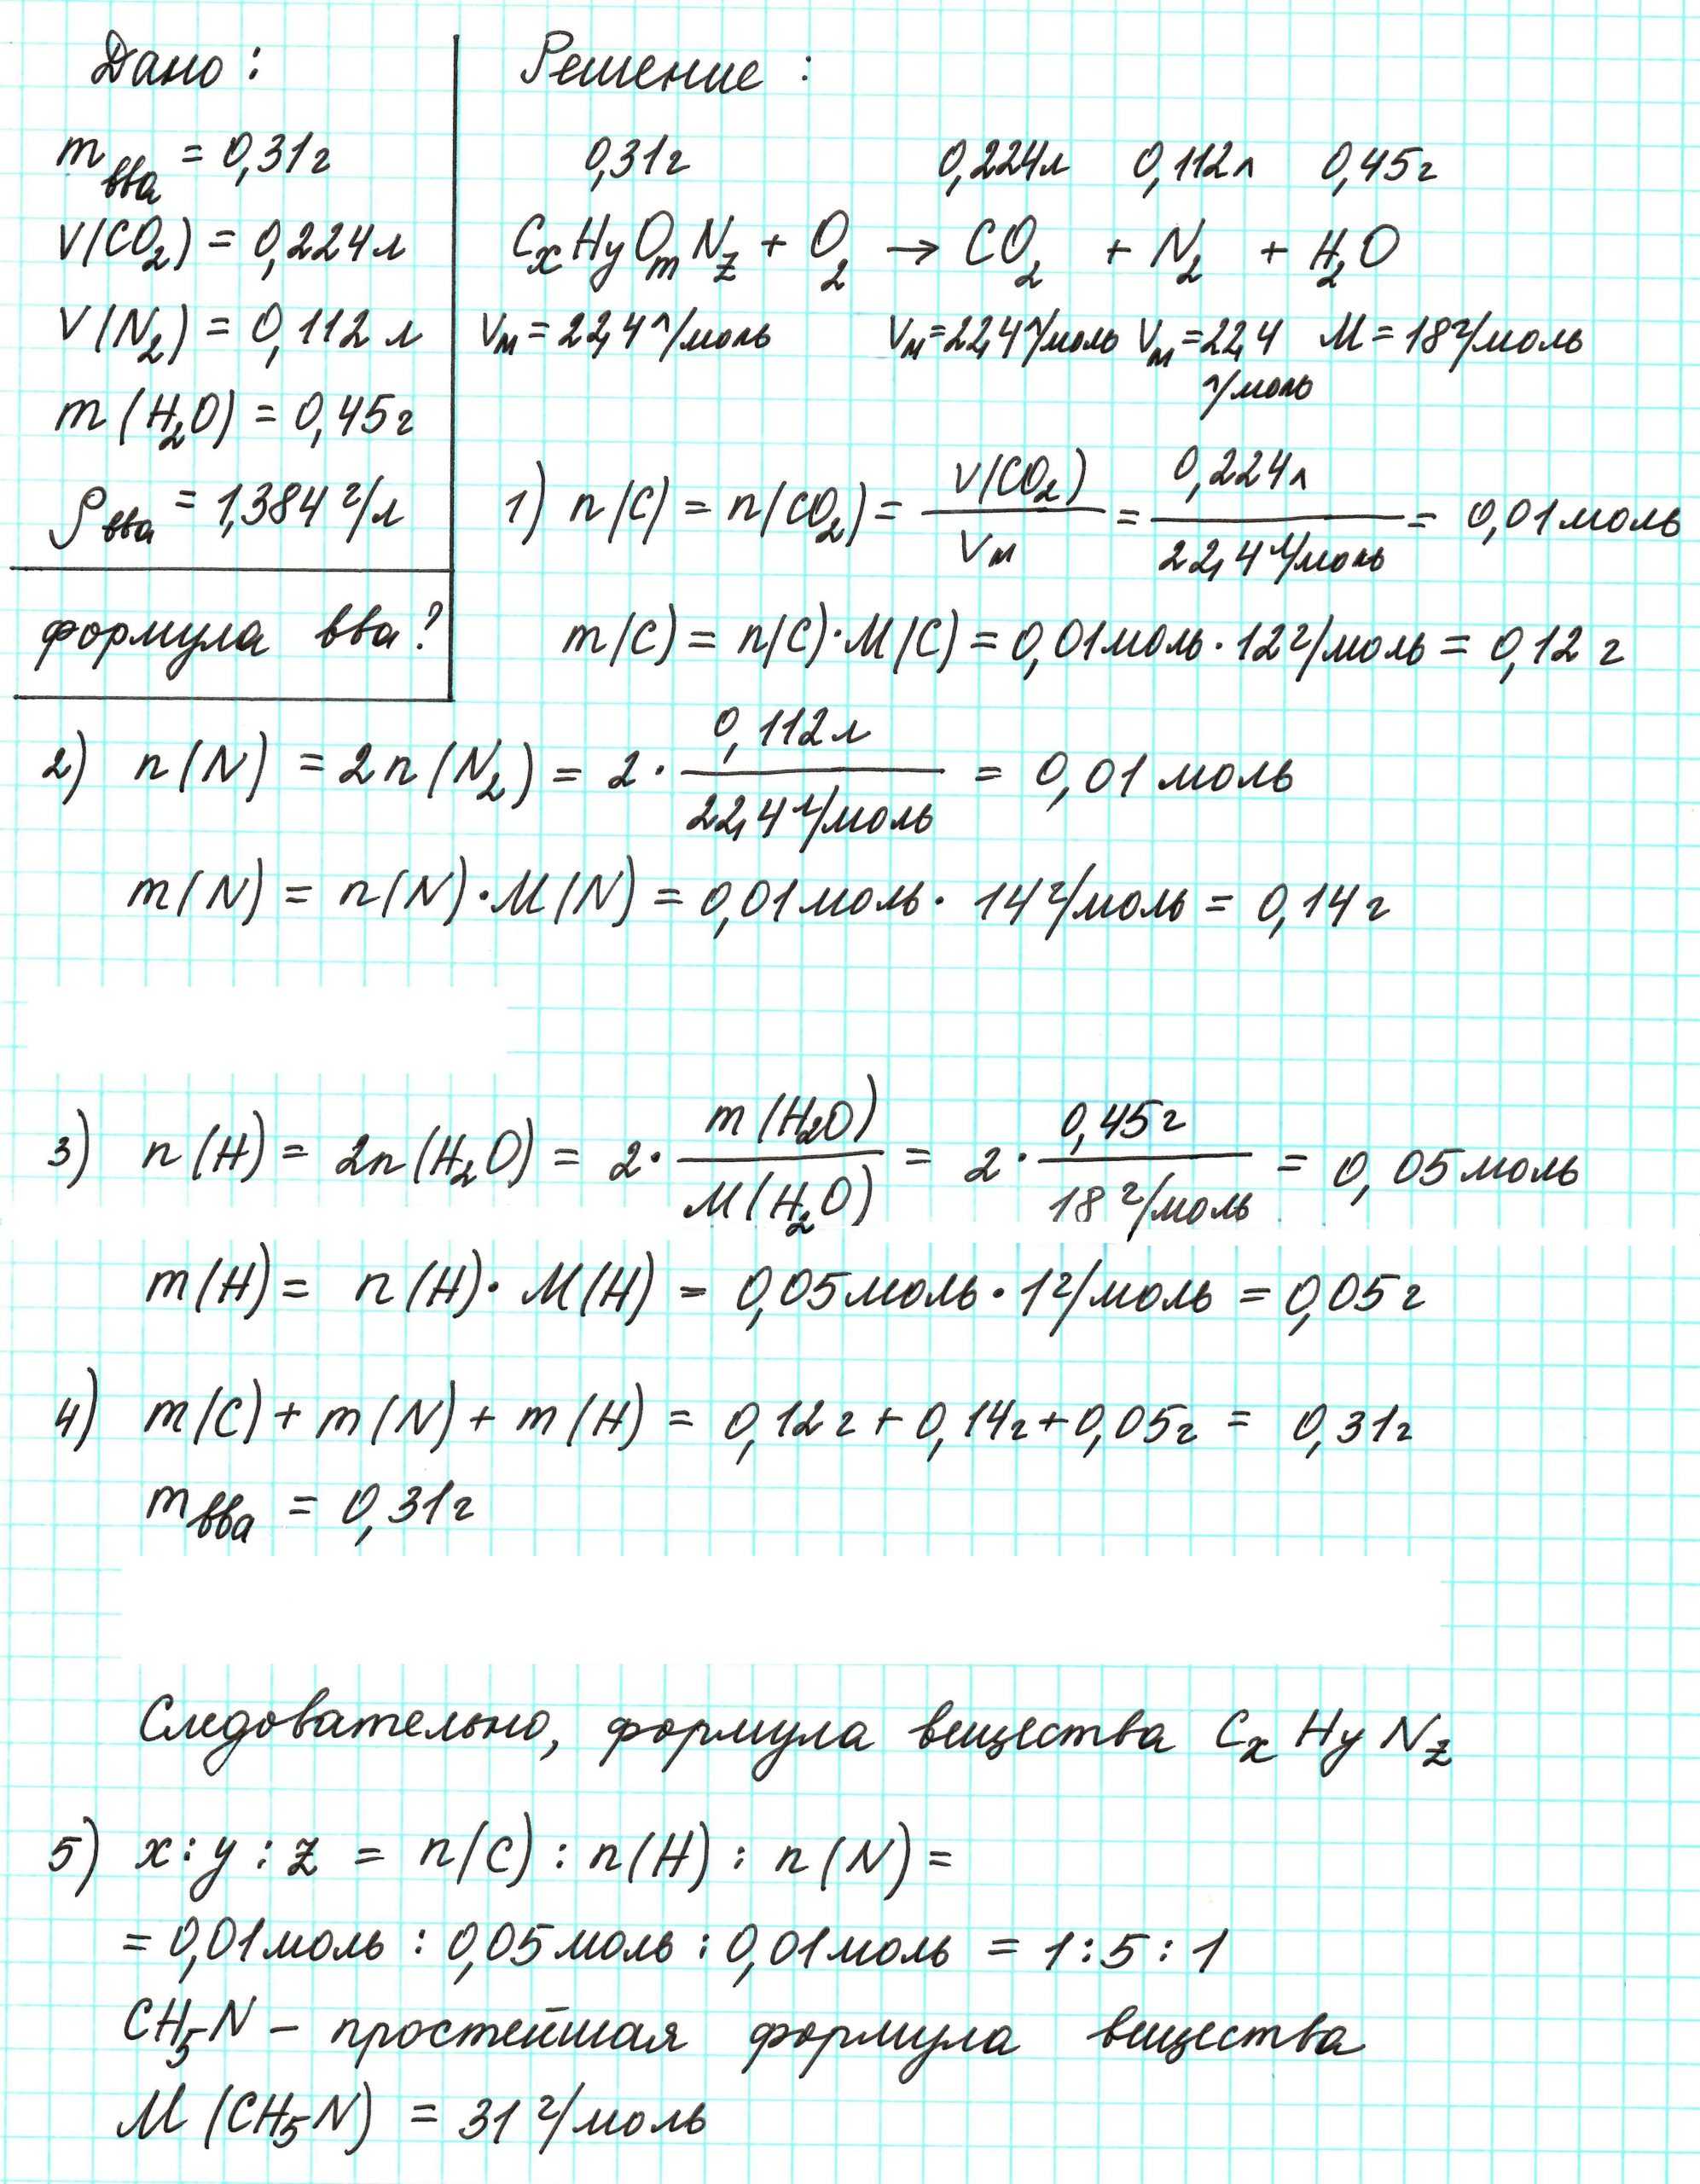 Дано:
m вва = 0,31г
V(CO₂) = 0,224л
V(N₂) = 0,112 л
m(H₂O) = 0,45г
ρ вва = 1,384 г/л
формула вва?
Решение:
0,31г 0,224л 0,112л 0,45г
CxHyOmNz + O₂ → CO₂ + N₂ + H₂O
Vм = 22,4 л/моль Vм = 22,4 л/моль Vм = 22,4 л/моль M = 18 г/моль
1) n(C) = n(CO₂) = V(CO₂)/Vм = 0,224л/22,4 л/моль = 0,01моль
m(C) = n(C)·M(C) = 0,01моль · 12 г/моль = 0,12 г
2) n(N) = 2n(N₂) = 2 · 0,112л/22,4 л/моль = 0,01 моль
m(N) = n(N)·M(N) = 0,01моль · 14 г/моль = 0,14 г
3) n(H) = 2n(H₂O) = 2 · m(H₂O)/M(H₂O) = 2 · 0,45г/18 г/моль = 0,05моль
m(H) = n(H)· M(H) = 0,05моль · 1 г/моль = 0,05 г
4) m(C) + m(N) + m(H) = 0,12 г + 0,14г + 0,05г = 0,31г
m вва = 0,31г
Следовательно, формула вещества CxHyNz
5) x : y : z = n(C) : n(H) : n(N) =
= 0,01моль : 0,05моль : 0,01моль = 1 : 5 : 1
CH₅N – простейшая формула вещества
M(CH₅N) = 31 г/моль